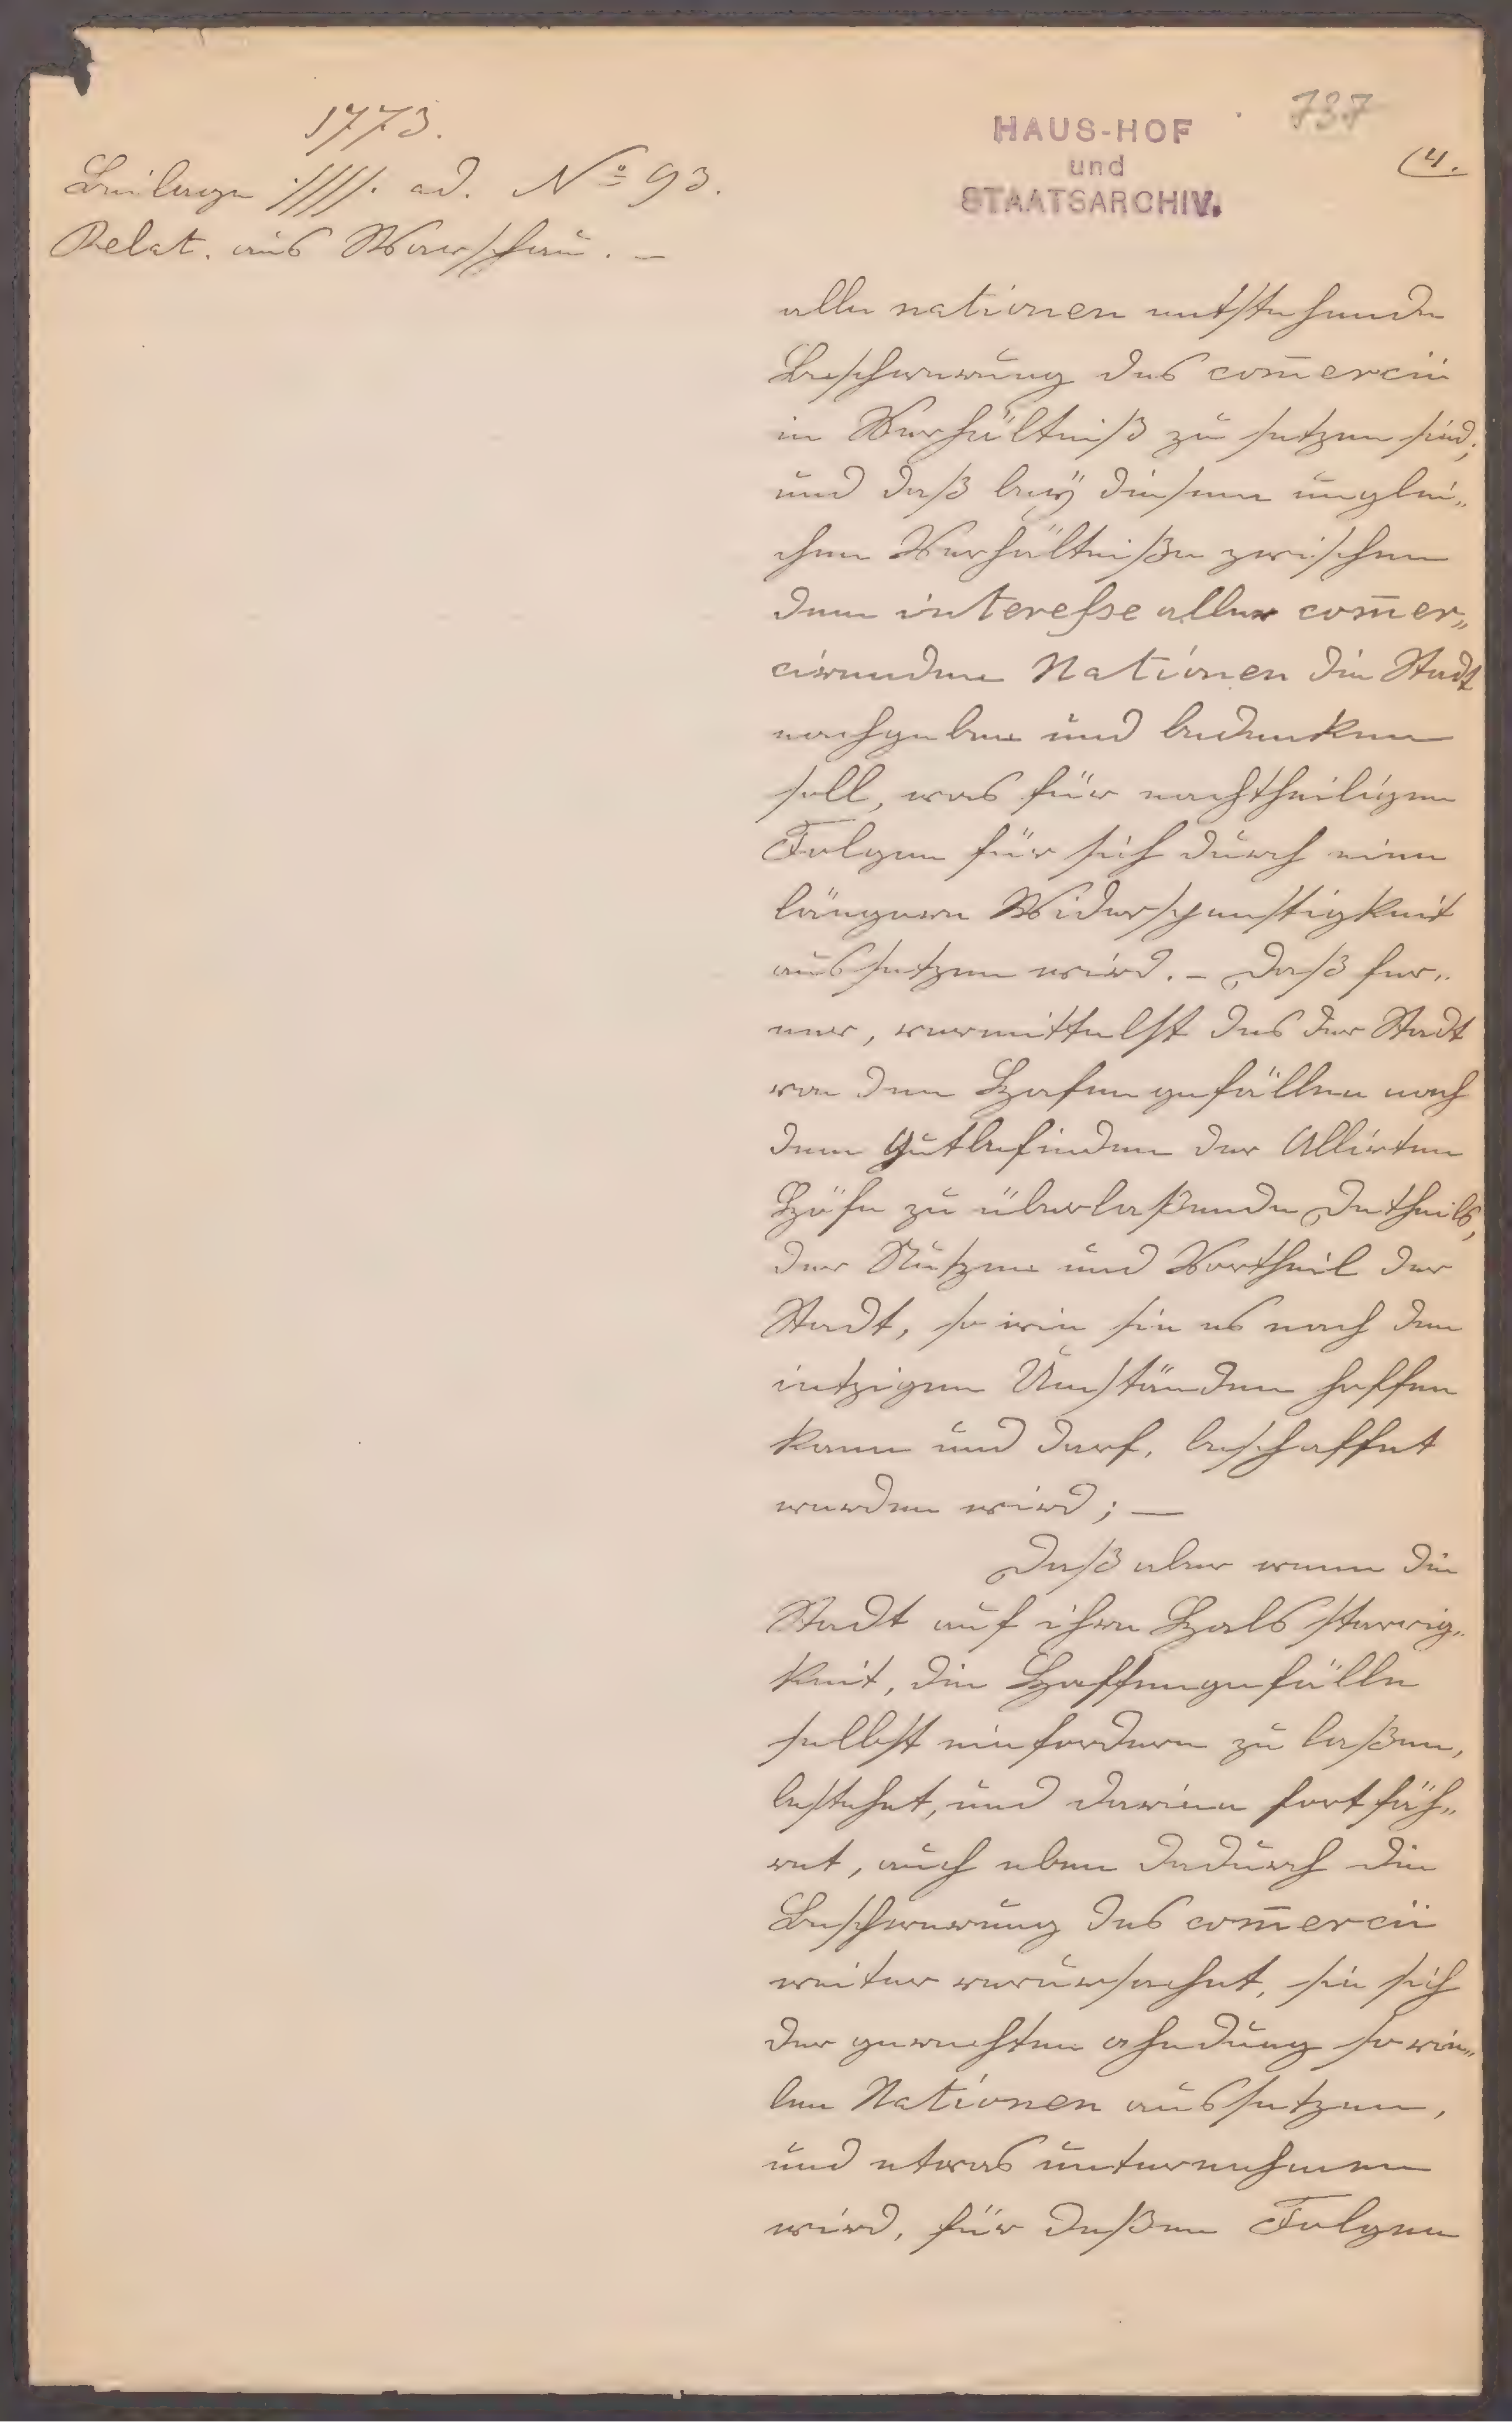 1773.
Beilage ://// ad. No 93.
Relat. aus Warschau. –
HAUS-HOF
und
STAATSARCHIV.
737
(4.
alle nationen entstehende
Beschwerung des com̅ercii
in Verhältniß zu setzen sind;
und daß beÿ diesem unglei„
chen Verhältniße zwischen
dem intereße aller com̅er„
cirenden Nationen die Stadt
nachgeben und bedenken
soll, was für nachtheiligen
Folgen für sich durch eine
längere Widerspenstigkeit
aussetzen wird. – Daß fer„
ner, vermittelst des der Stadt
von den Hafengefällen nach
dem Gutbefinden der Allirten
Höfe zu überlaßende Detheils,
der Nutzen und Vortheil der
Stadt, so wie sie es nach den
ietzigen Umständen hoffen
kann und darf, beschaffet
werden wird; —
Daß aber wenn die
Stadt auf ihre Halsstarrig„
keit, die Haffengefälle
selbst einfordern zu laßen,
bestehet, und darinn fortfäh„
ret, auch eben dadurch die
Beschwerung des com̅ercii
weiter verursachet, sie sich
der gerechten ahndung so vie„
len Nationen aussetzen,
und etwas unternehmen
wird, für deßen Folgen